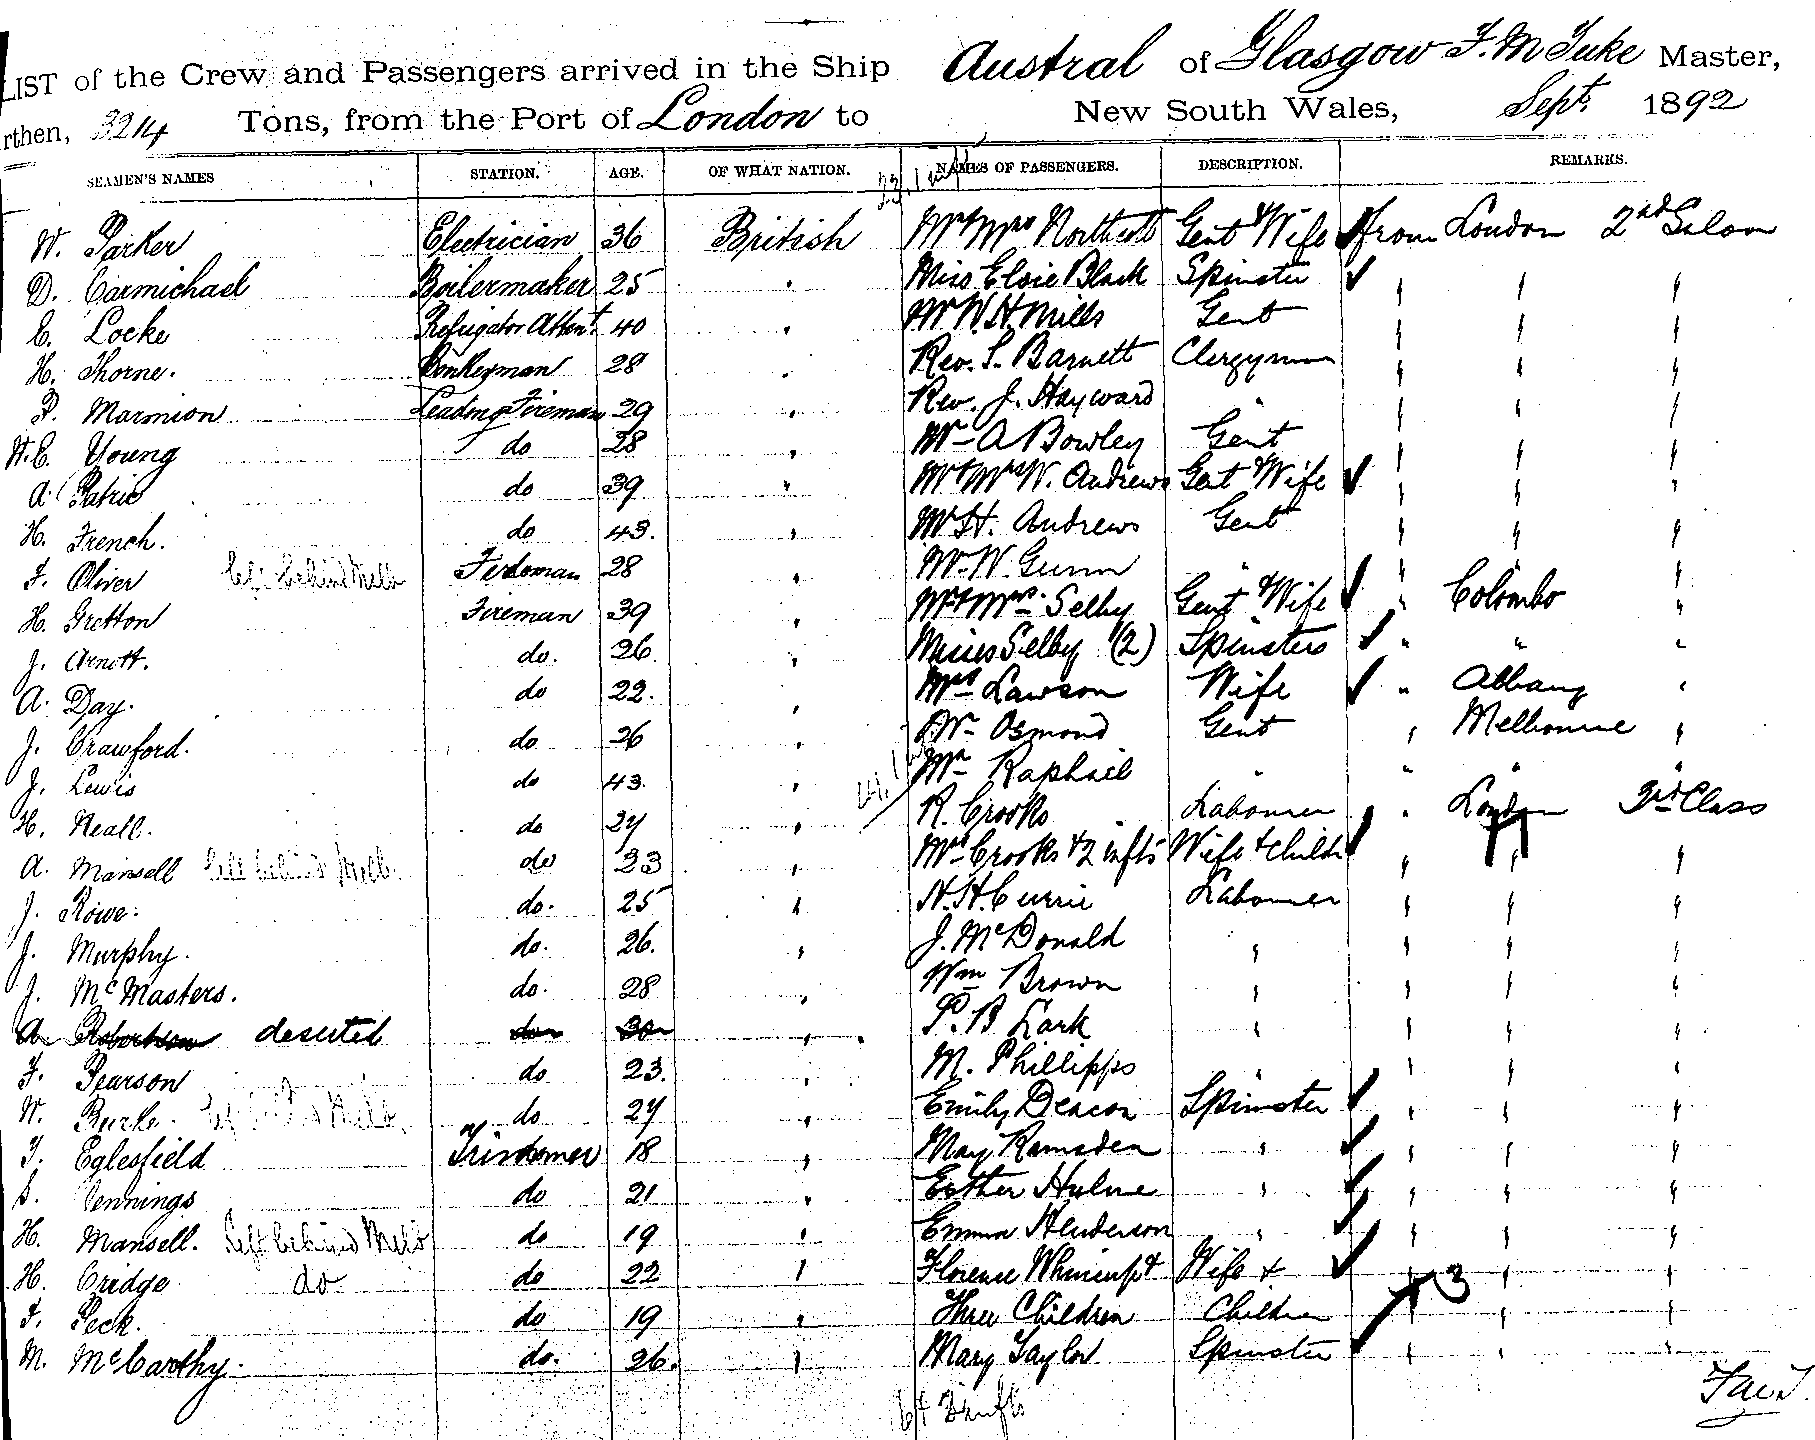 LIST of the Crew and Passengers arrived in the Ship Austral of Glasgow F. M Tuke Master,
rthen, 3214 Tons, from the Port of London to New South Wales, Sept. 1892
SEAMEN'S NAMES STATION. AGE. OF WHAT NATION. NAMES OF PASSENGERS. DESCRIPTION. REMARKS.
W. Parker Electrician 36 British Mr & Mrs Northcott Gent & Wife from London 2nd Saloon
D. Carmichael Boilermaker 25 " Miss Elsie Black Spinster " " "
C. Locke Refrigator Attent. 40 " Mr W. H. Mills Gent " " "
H. Thorne. Donkeyman 28 " Rev. S. Barnett Clergyman " " "
P. Marmion Leading Fireman 29 " Rev. J. Hayward " " " "
W. C. Young do 28 " Mr A Bowley Gent " " "
A. Patrie do 39 " Mr & Mrs W. Andrews Gent & Wife " " "
H. French. do 43. " Mr H. Andrews Gent " " "
F. Oliver left behind Melb Fireman 28 " Mr W. Gunn " " " "
H. Gretton Fireman 39 " Mr & Mrs. Selby Gent & Wife " Colombo "
J. Arnott. do. 26. " Misses Selby (2) Spinsters " " "
A. Day. do 22. " Mrs Lawson Wife " Albany "
J. Crawford. do 26 " Mr Osmond Gent " Melbourne "
J. Lewis do 43. " Mr Raphael " " " "
H. Neall. do 24 " R. Crooks Labourer " London 3rd Class
A. Mansell left behind Melb. do 23 " Mrs Crooks & 2 infts Wife & Childn " " "
J. Rowe. do. 25 " N. H. Currie Labourer " " "
J. Murphy. do. 26. " J. McDonald " " " "
J. McMasters. do. 28 " Wm Brown " " " "
A. Robertson deserted do 30 " P. B Lark " " " "
F. Pearson do 23. " M. Phillipps " " " "
W. Burke. left behind Melb. do 24 " Emily Deacon Spinster " " "
T. Eglesfield Trimmer 18 " May Ramsden " " " "
S. Jennings do 21 " Esther Hulme " " " "
H. Mansell. Left behind Melb do 19 " Emma Henderson " " " "
H. Cridge do do 22 " Florence & Wife & " " "
F. Peck. do 19 " Three Children Children 3 " " "
M. McCarthy. do. 26. " Mary Taylor Spinster " " "